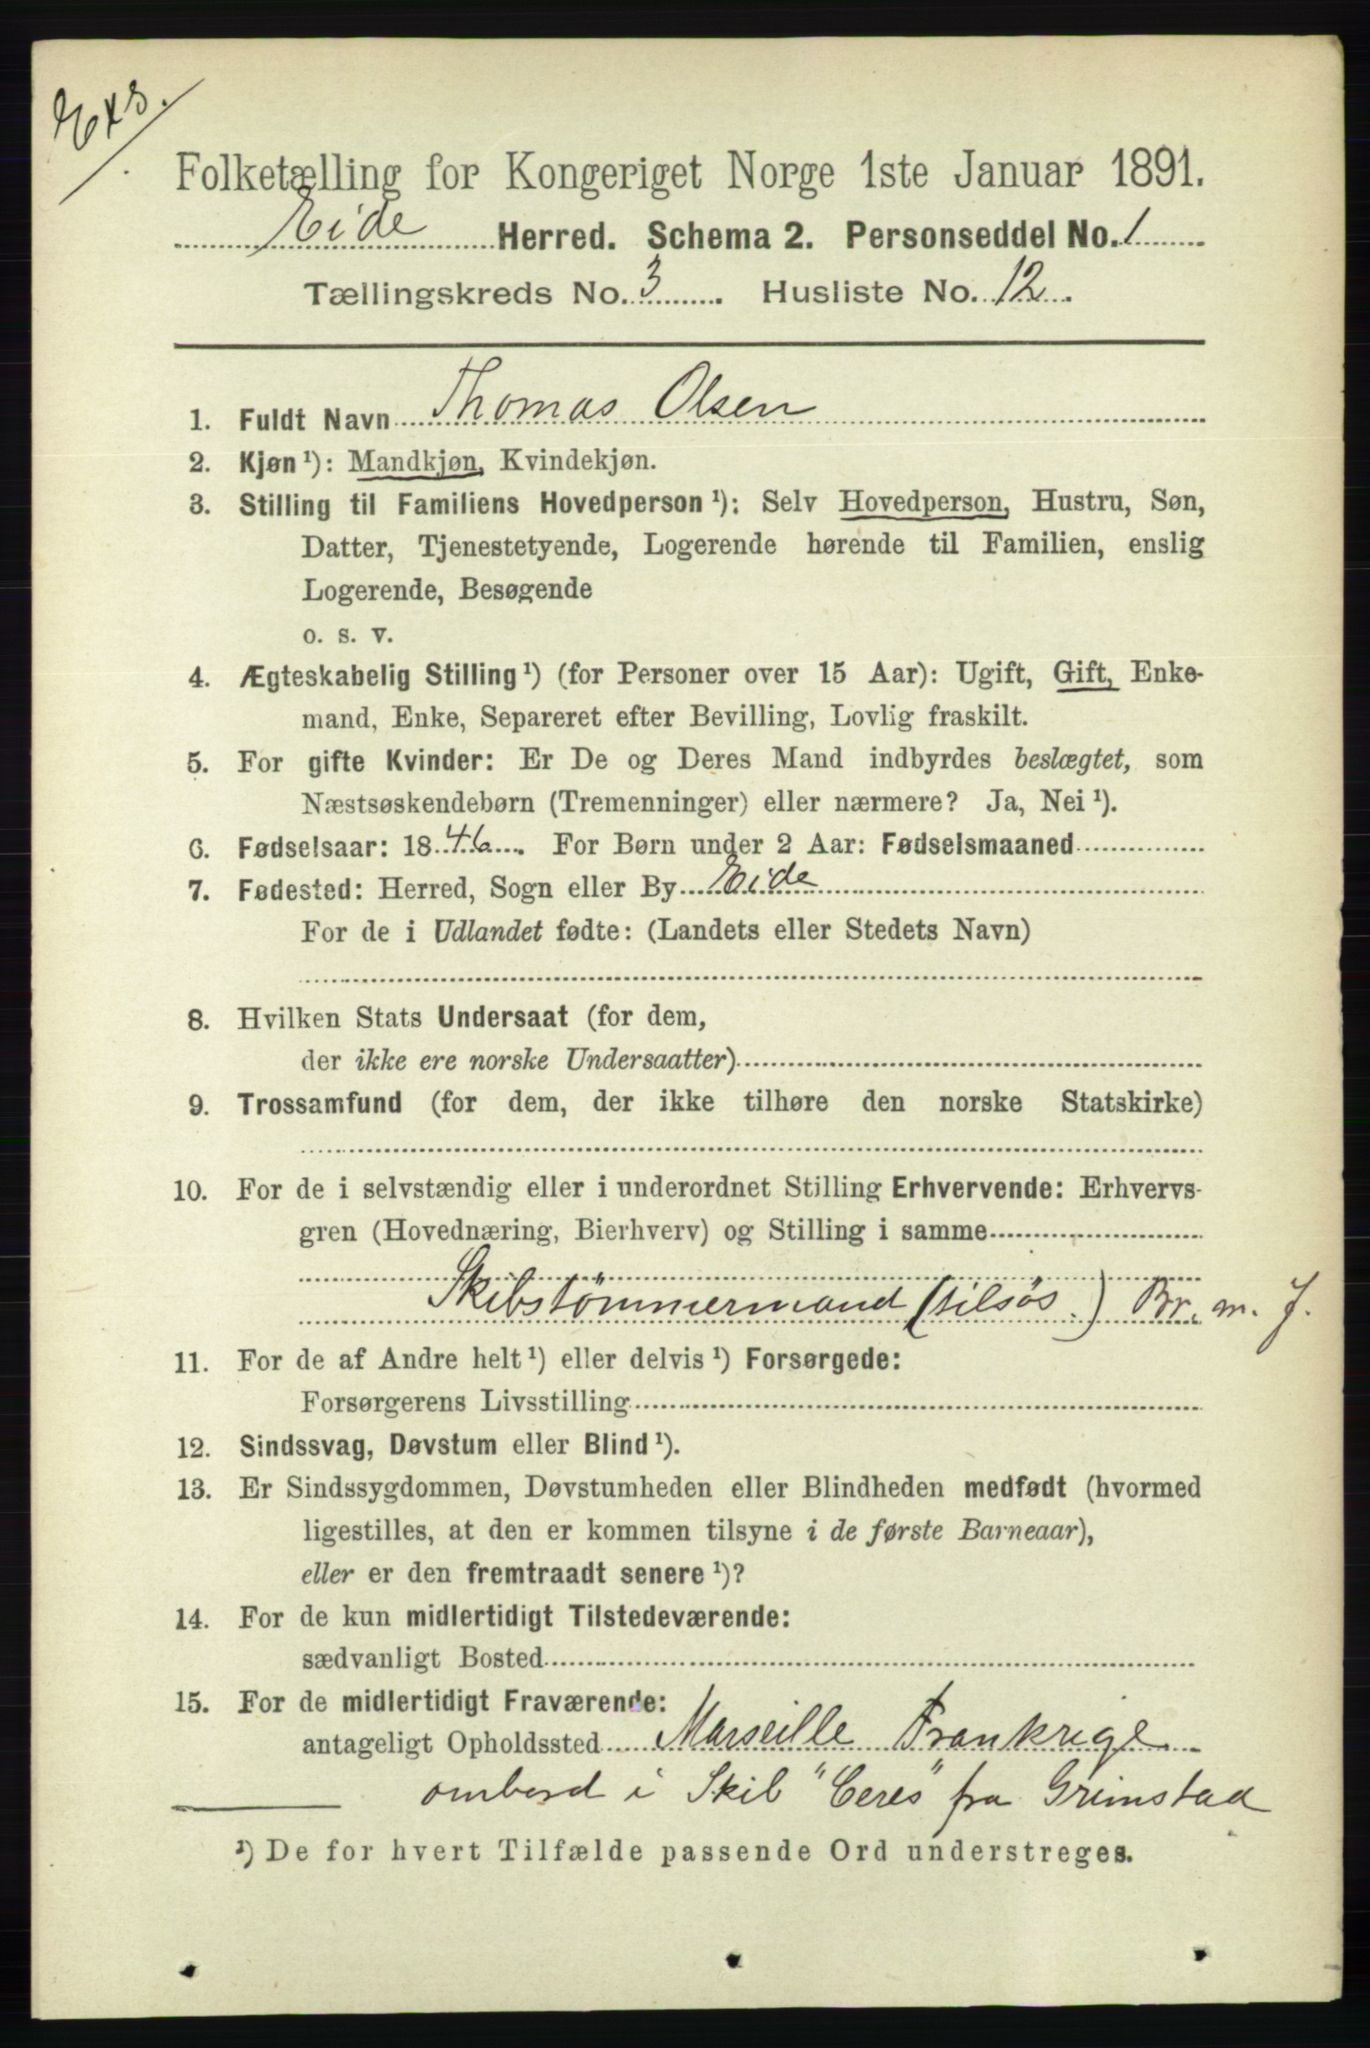 Exs.
Folketælling for Kongeriget Norge 1ste Januar 1891.
Eide Herred. Schema 2. Personseddel No. 1
Tællingskreds No. 3. Husliste No. 12.
1. Fuldt Navn Thomas Olsen
2. Kjøn ¹): Mandkjøn, Kvindekjøn.
3. Stilling til Familiens Hovedperson ¹): Selv Hovedperson, Hustru, Søn,
Datter, Tjenestetyende, Logerende hørende til Familien, enslig
Logerende, Besøgende
o. s. v.
4. Ægteskabelig Stilling ¹) (for Personer over 15 Aar): Ugift, Gift, Enke-
mand, Enke, Separeret efter Bevilling, Lovlig fraskilt.
5. For gifte Kvinder: Er De og Deres Mand indbyrdes beslægtet, som
Næstsøskendebørn (Tremenninger) eller nærmere? Ja, Nei ¹).
6. Fødselsaar: 1846. For Børn under 2 Aar: Fødselsmaaned
7. Fødested: Herred, Sogn eller By Eide
For de i Udlandet fødte: (Landets eller Stedets Navn)
8. Hvilken Stats Undersaat (for dem,
der ikke ere norske Undersaatter)
9. Trossamfund (for dem, der ikke tilhøre den norske Statskirke)
10. For de i selvstændig eller i underordnet Stilling Erhvervende: Erhvervs-
gren (Hovednæring, Bierhverv) og Stilling i samme
Skibstømmermand (tilsøs.) Br. m. J.
11. For de af Andre helt ¹) eller delvis ¹) Forsørgede:
Forsørgerens Livsstilling
12. Sindssvag, Døvstum eller Blind ¹).
13. Er Sindssygdommen, Døvstumheden eller Blindheden medfødt (hvormed
ligestilles, at den er kommen tilsyne i de første Barneaar),
eller er den fremtraadt senere ¹)?
14. For de kun midlertidigt Tilstedeværende:
sædvanligt Bosted
15. For de midlertidigt Fraværende:
antageligt Opholdssted Marseille Frankrige
ombord i Skib "Ceres" fra Grimstad
¹) De for hvert Tilfælde passende Ord understreges.